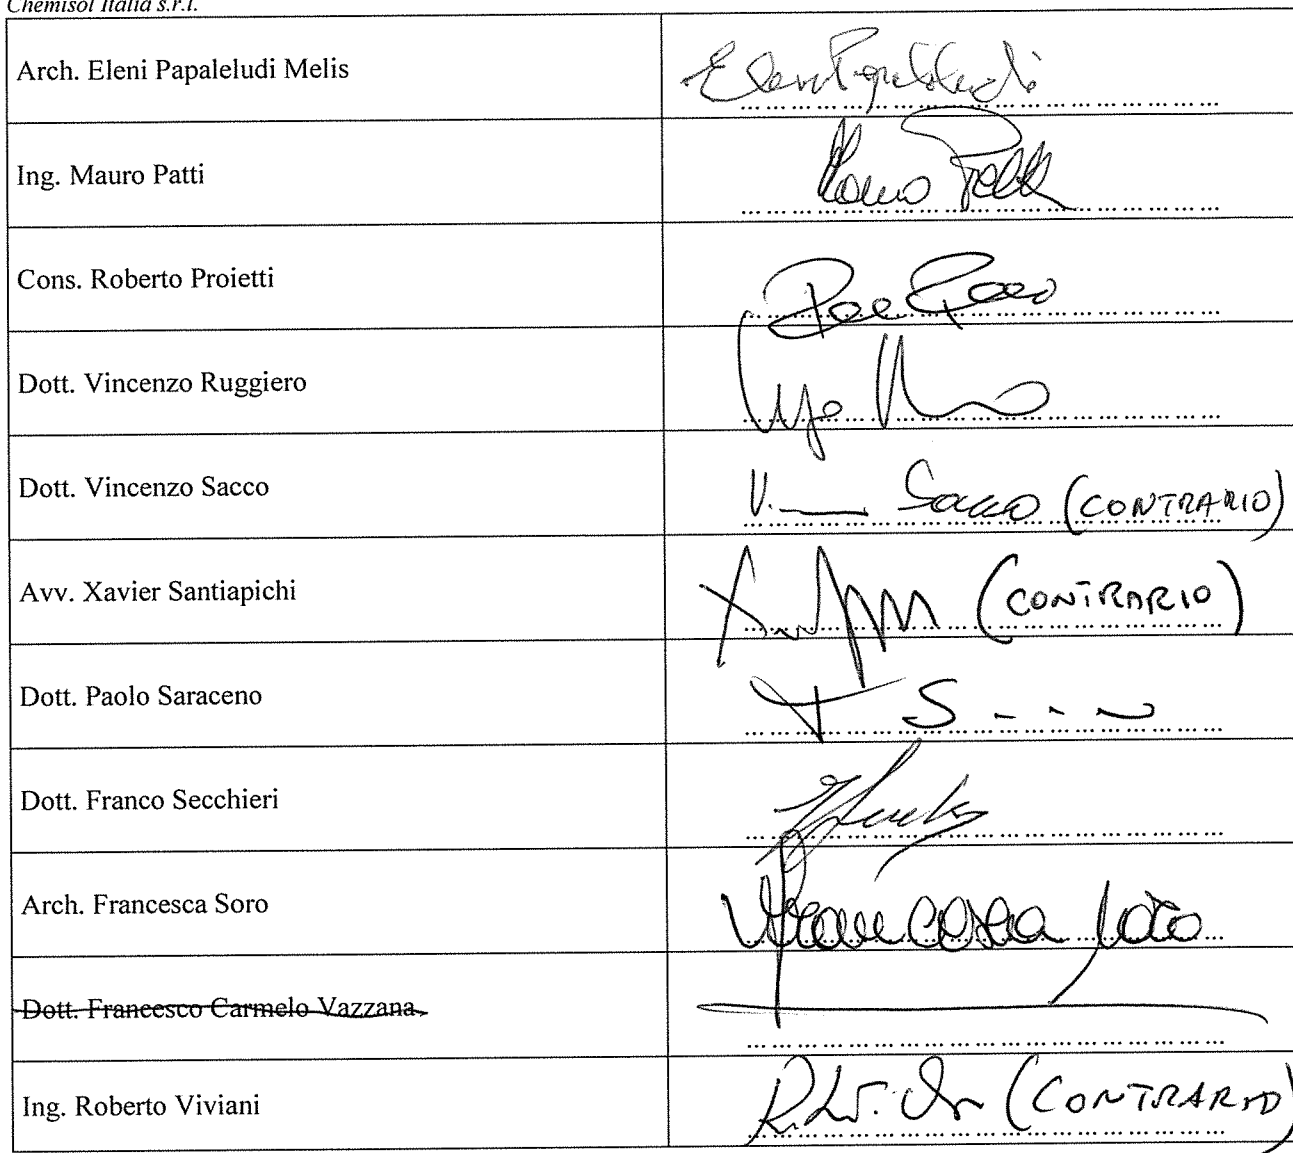 Chemisol Italia s.r.l.
Arch. Eleni Papaleludi Melis
Eleni Papaleludi
Ing. Mauro Patti
Mauro Patti
Cons. Roberto Proietti
Dott. Vincenzo Ruggiero
Dott. Vincenzo Sacco
V. Sacco (CONTRARIO)
Avv. Xavier Santiapichi
(CONTRARIO)
Dott. Paolo Saraceno
Dott. Franco Secchieri
Arch. Francesca Soro
Francesca Soro
Dott. Francesco Carmelo Vazzana
Ing. Roberto Viviani
(CONTRARIO)